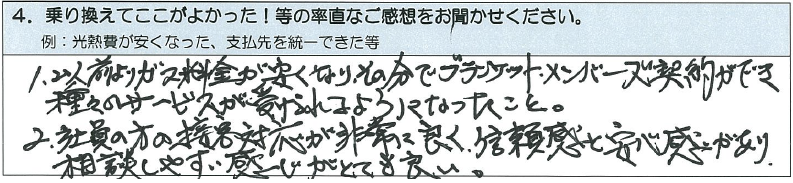 4. 乗り換えてここがよかった！等の率直なご感想をお聞かせください。
例：光熱費が安くなった、支払先を統一できた等
1. 以前よりガス料金が安くなり、その分でブランケット・メンバーズ契約ができ
種々のサービスが受けられるようになったこと。
2. 社員の方の接客対応が非常に良く、信頼感と安心感があり
相談しやすい感じがとても良い。